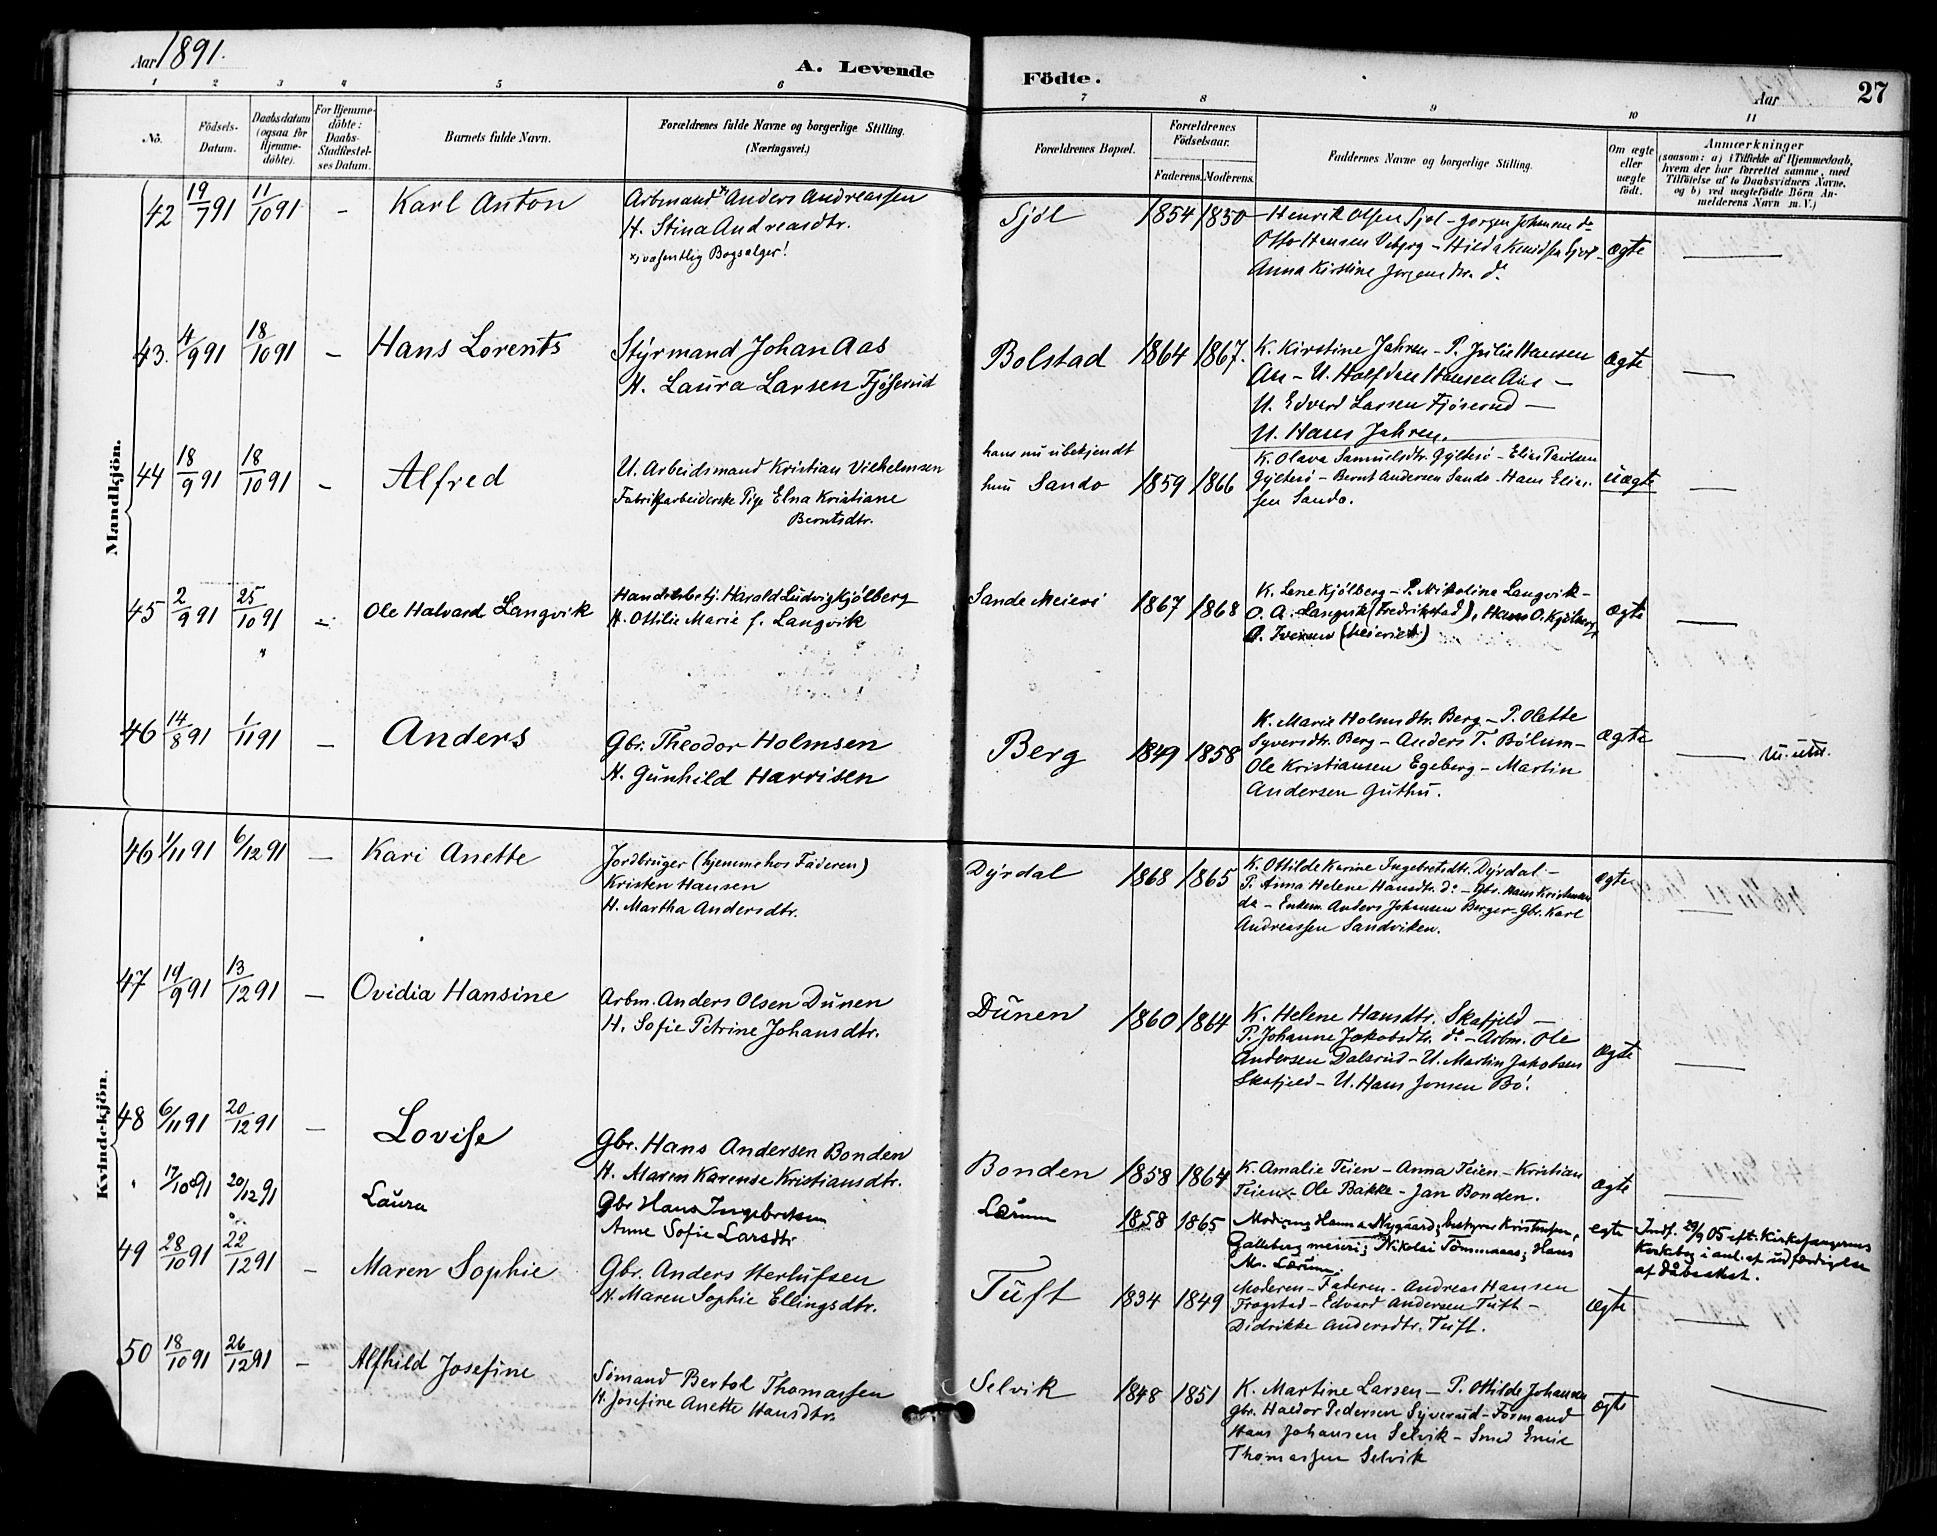 Aar 1891.
A. Levende Födte.
Aar
27
1 2 3 4 5 6 7 8 9 10 11
No.
Födsels-Datum.
Daabsdatum (ogsaa for Hjemme-döbte).
For Hjemme-döbte: Daabs-Stadfæstel-ses Datum.
Barnets fulde Navn.
Forældrenes fulde Navne og borgerlige Stilling. (Næringsvei.)
Forældrenes Bopæl.
Forældrenes Födselsaar.
Faderens. Moderens.
Faddernes Navne og borgerlige Stilling.
Om ægte eller uægte födt.
Anmærkninger
(saasom: a) i Tilfælde af Hjemmedaab,
hvem der har forrettet samme, med
Tilföielse af to Daabsvidners Navne,
og b) ved uægtefödte Börn An-
melderens Navn m. V.)
Mandkjön.
42 19/7 91 11/10 91 – Karl Anton
Arbmand x) Anders Andreassen
H. Stina Andreasdtr.
x) væsentlig Bogsælger!
Sjøl 1854 1850
Henrik Olsen Sjøl – Jørgen Johannsen do
Otto Hansen Vebjørg – Hilda Knudsen Sjøl –
Anna Kirstine Jørgensdtr. do
ægte —
43. 4/9 91 18/10 91 – Hans Lorents
Styrmand Johan Aas
H. Laura Larsen Fjøserud
Bolstad 1864 1867.
K. Kirstine Jahren – P. Julie Hansen
Aas – U. Halfdan Hansen Aas –
U. Edvard Larsen Fjøserud –
U. Hans Jahren.
ægte —
44 18/9 91 18/10 91 – Alfred
U. Arbeidsmand Kristian Vilhelmsen
Fabrikarbeiderske Pige Elna Kristiane
Berntsdtr.
hans nu ubekjendt
hun Sando 1859 1866
K. Olava Samuelsdtr. Gylterö – Elias Paulsen
Gylterö – Bernt Andersen Sando. Hans Elias-
sen Sando.
uægte —
45 2/9 91 25/10 91 – Ole Halvard Langvik
Handelsbetj. Harald Ludvig Kjølberg
H. Ottilie Marie f. Langvik
Sande Meieri 1867 1868
K. Lene Kjölberg – P. Nikoline Langvik –
O. A. Langvik (Fredrikstad), Hans O. Kjölberg,
A. Iversen (Meieriet)
ægte —
46 14/8 91 1/11 91 – Anders
Gbr. Theodor Holmsen
H. Gunhild Harrisen
Berg 1849 1858
K. Marie Holmsdtr. Berg – P. Olette
Syversdtr. Berg – Anders T. Bölum –
Ole Kristiansen Egeberg – Martin
Andersen Guthu.
ægte — M. utd.
Kvindekjön.
46 1/11 91 6/12 91 – Kari Anette
Jordbruger (hjemme hos Faderen)
Kristen Hansen
H. Martha Andersdtr.
Dyrdal 1868 1865
K. Ottilde Karine Ingebretsdtr. Dyrdal –
P. Anna Helene Hansdtr. do – Gbr. Hans Kristensen
do – Enkem. Anders Johansen Berger – Gbr. Karl
Andreassen Sandviken.
ægte —
47 19/9 91 13/12 91 – Ovidia Hansine
Arbm. Anders Olsen Dunen
H. Sofie Petrine Johansdtr.
Dunen 1860 1864
K. Helene Hansdtr. Skafjeld –
P. Johanne Jakobsdtr. do – Arbm. Ole
Andersen Dalsrud – U. Martin Jakobsen
Skafjeld – U. Hans Jensen Bö.
ægte —
48 6/11 91 20/12 91 – Lovise
Gbr. Hans Andersen Bonden
H. Maren Karense Kristiansdtr.
Bonden 1858 1864
K. Amalie Teien – Anna Teien – Kristian
Teien – Ole Bakke – Jan Bonden.
ægte —
" 17/10 91 20/12 91 Laura
Gbr Hans Ingebretsen
Anne Sofie Larsdtr
Lærum 1858 1865
Moderen, Hanna Nygaard; bestyrer Kristensen,
Galleberg meieri; Nikolai Tömmeraas; Hans
Ms. Lærum.
egte
Indf. 29/9 05 eft. Kirkesangerens
Kirkebog i anl. af udfærdigelse
af dåbsattest.
49 28/10 91 22/12 91 – Maren Sophie
Gbr. Anders Herlufsen
H. Maren Sophie Ellingsdtr.
Tuft 1834 1849
Moderen – Faderen – Andreas Hansen
Frogstad – Edvard Andersen Tuft –
Didrikke Andersdtr. Tuft.
ægte —
50 18/10 91 26/12 91 – Alfhild Josefine
Sömand Bertol Thomassen
H. Josefine Anette Hansdtr.
Selvik 1848 1851
K. Martine Larsen – P. Ottilde Johansen
Gbr. Haldor Pedersen Syverud – Fosmand
Hans Johansen Selvik – Smed Emil
Thomassen Selvik
ægte —